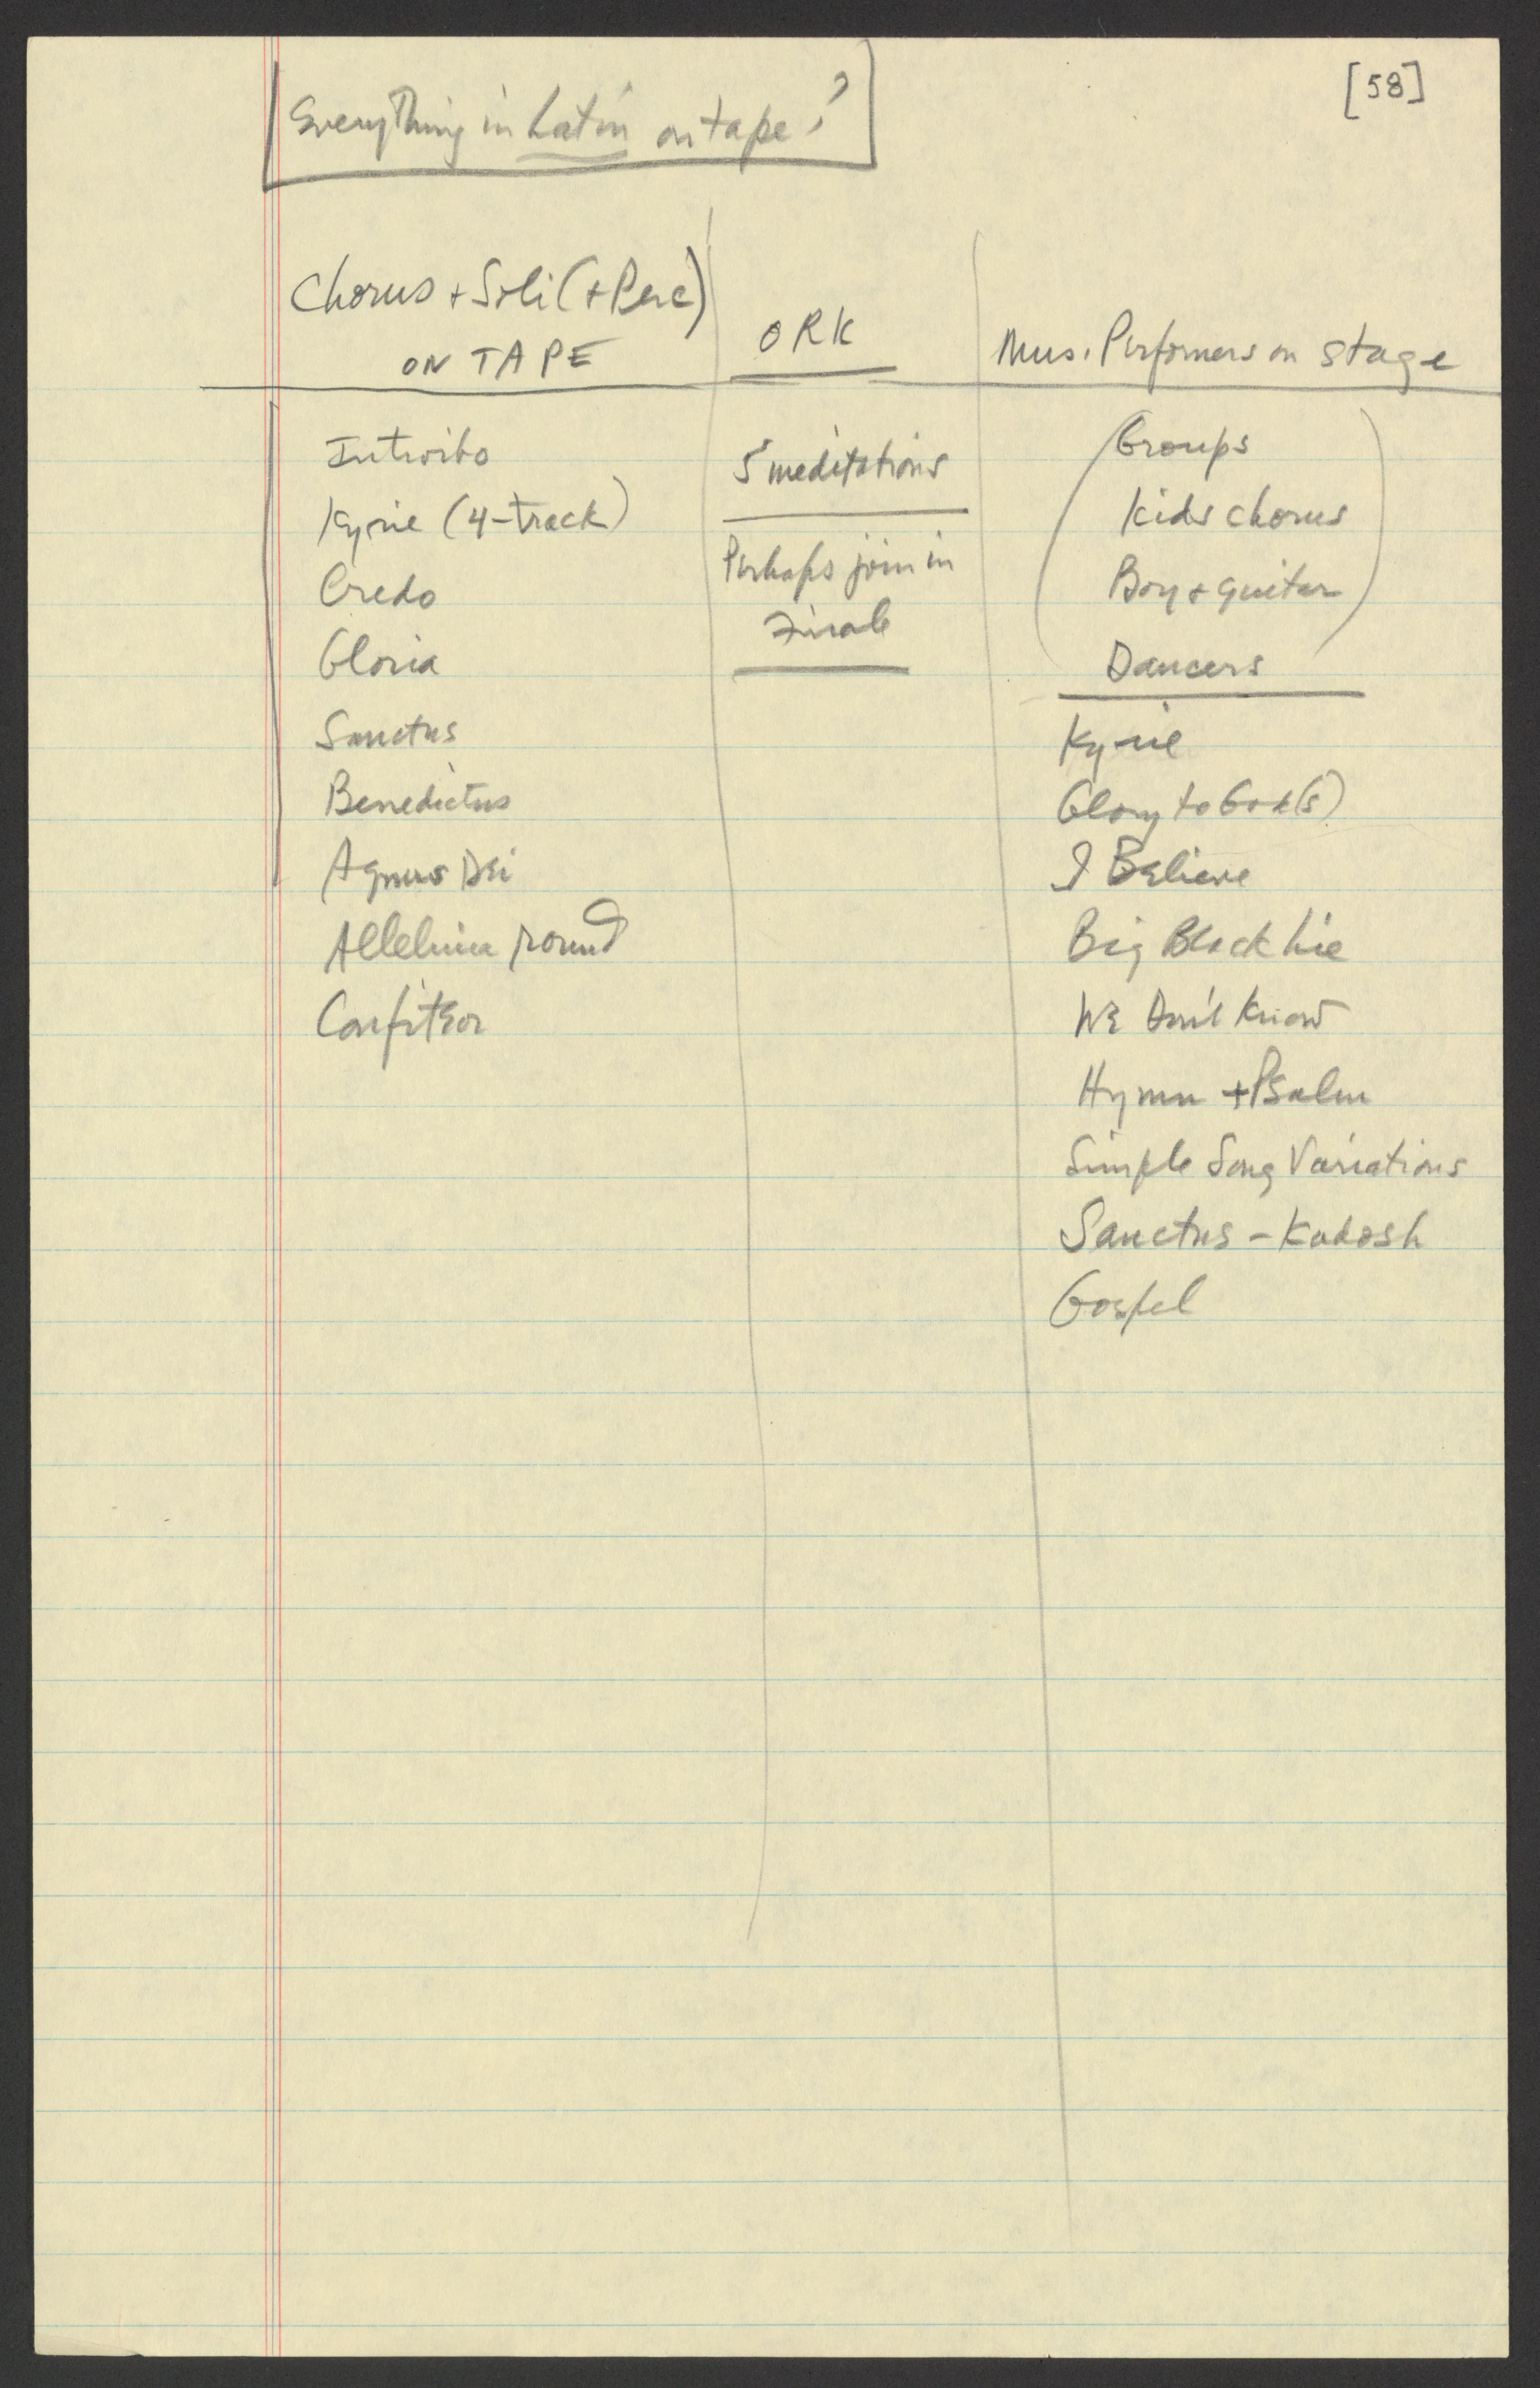 [58]
Everything in Latin on tape?
Chorus + Soli (+ Perc)
ON TAPE
Introibo
Kyrie (4-track)
Credo
Gloria
Sanctus
Benedictus
Agnus Dei
Alleluia round
Confiteor
ORK
5 meditations
Perhaps join in
Finale
Mus. Performers on stage
Groups
Kids chorus
Boy + guitar
Dancers
Kyrie
Glory to God(s)
I Believe
Big Black Lie
We Don't Know
Hymn + Psalm
Simple Song Variations
Sanctus - Kadosh
Gospel